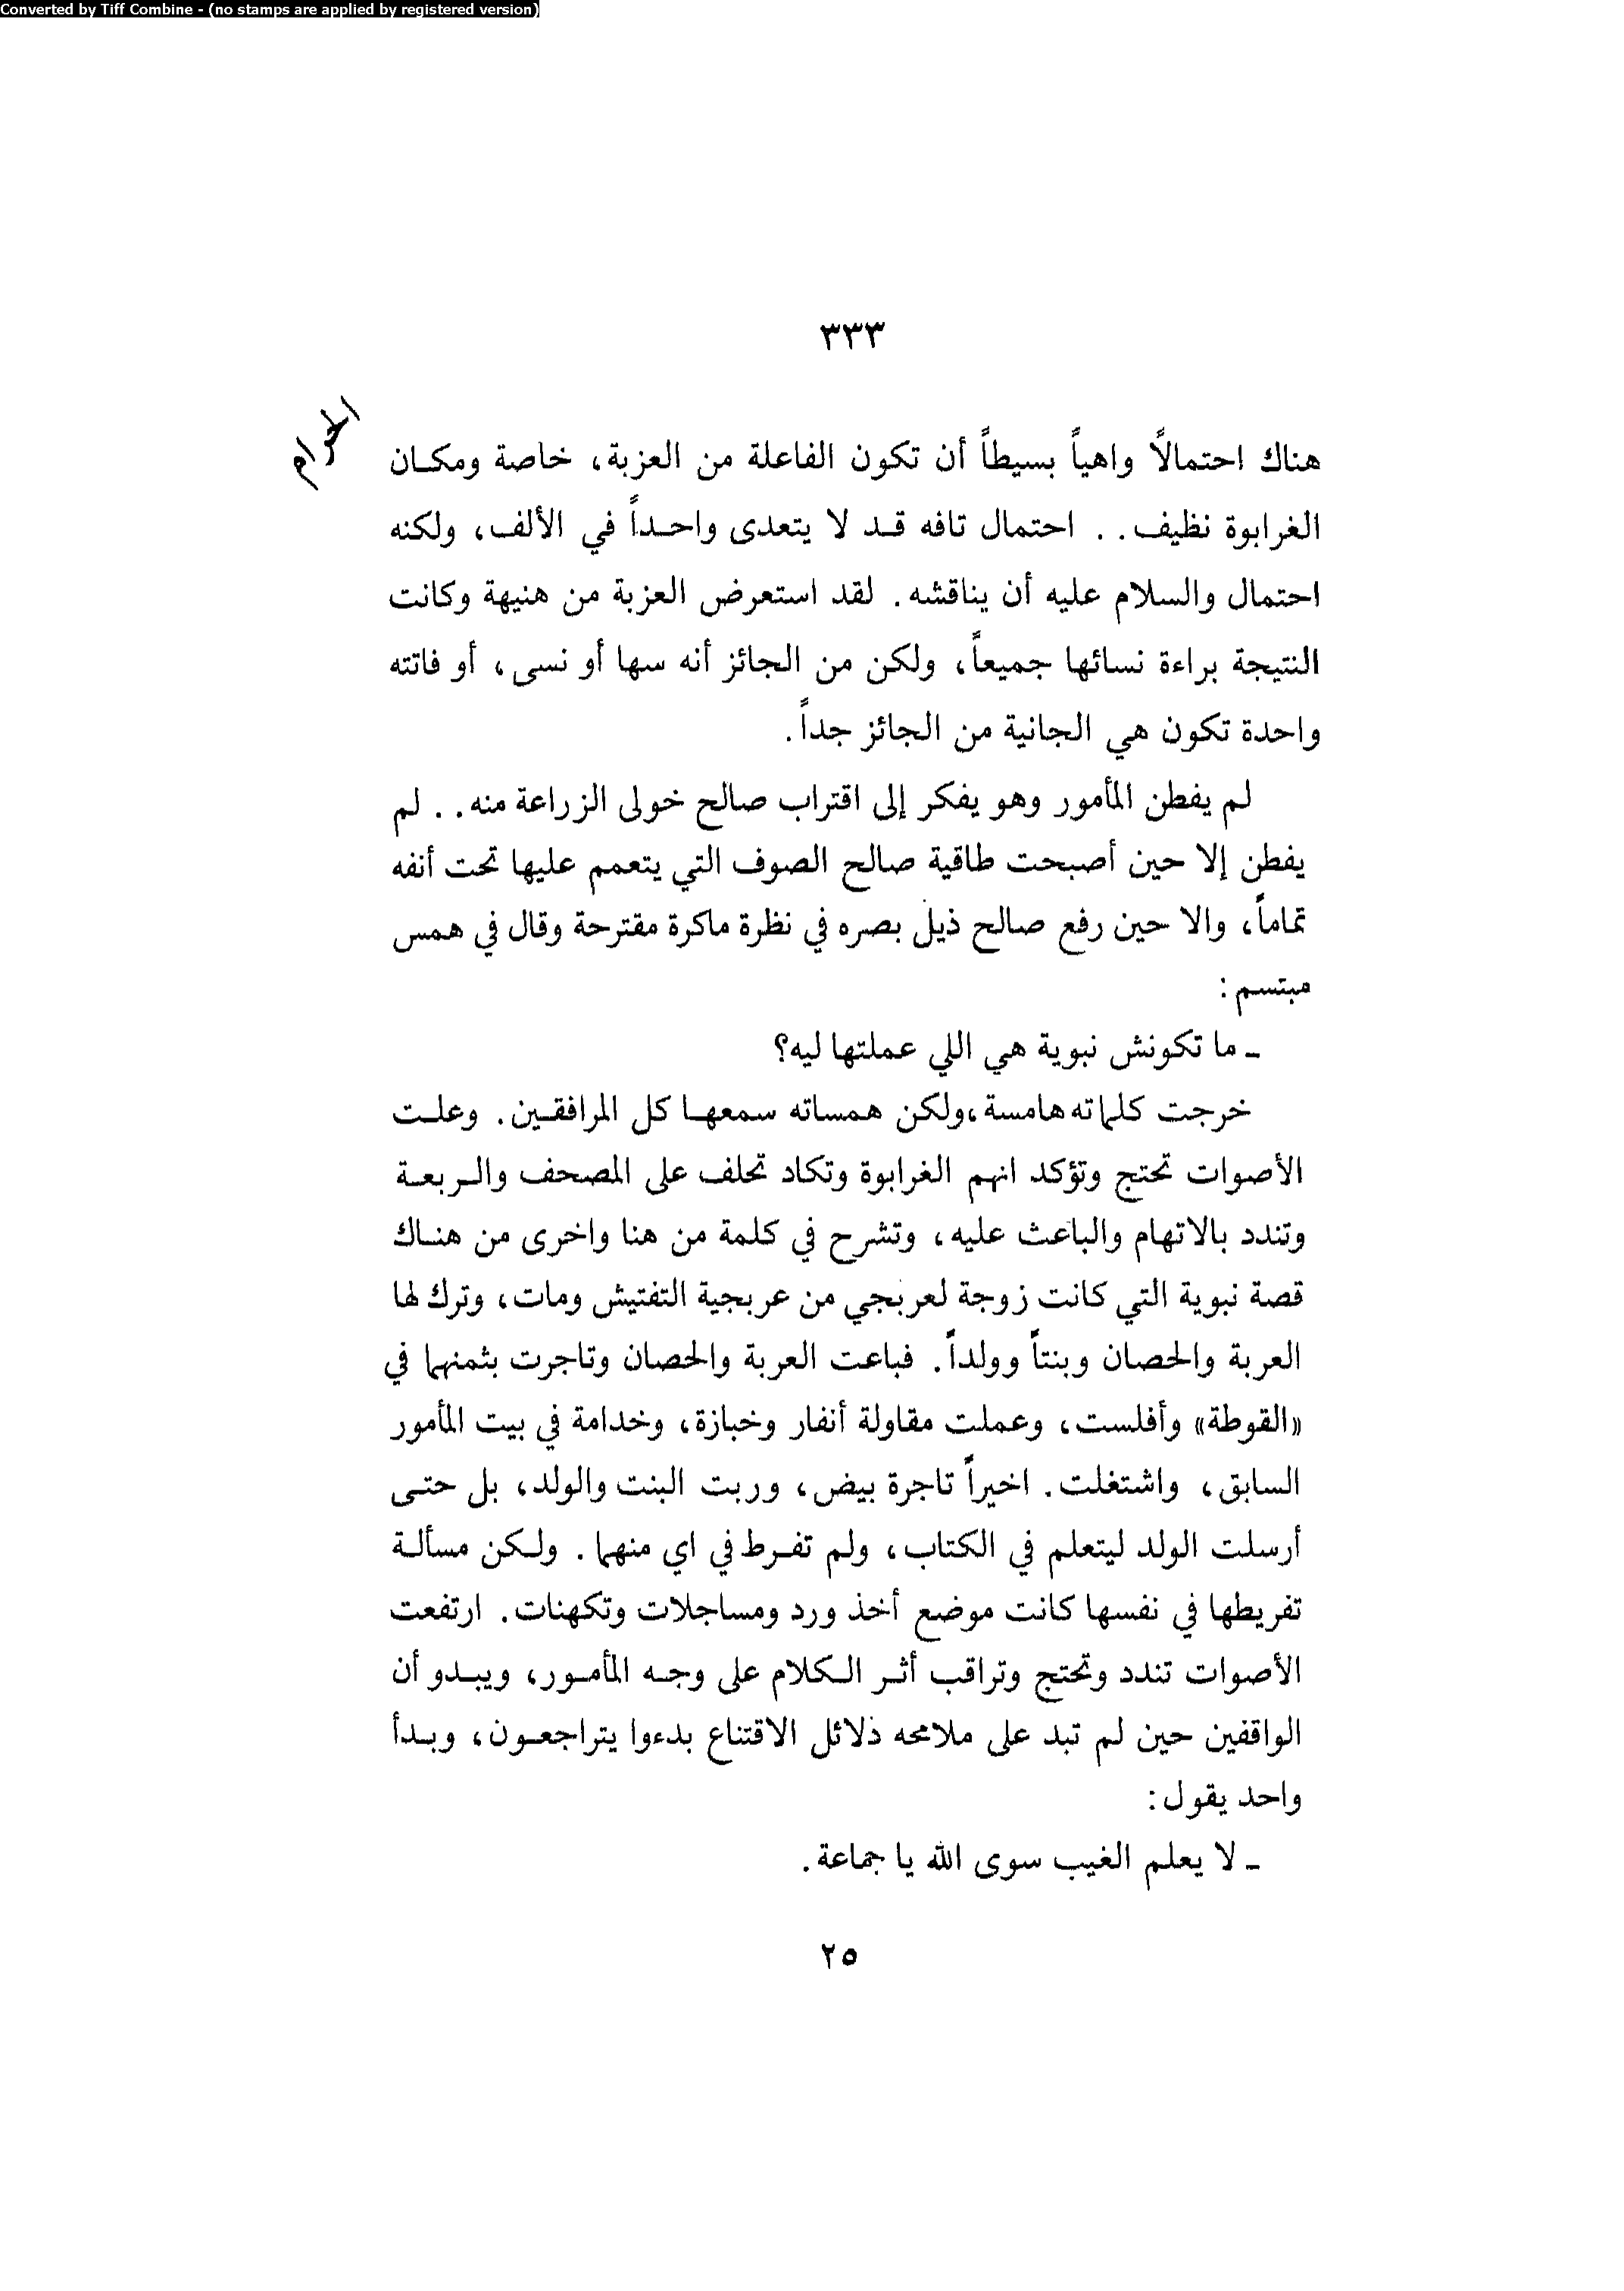 Converted by Tiff Combine - (no stamps are applied by registered version)
٣٣٣
الحرام
هناك احتمالًا واهياً بسيطاً أن تكون الفاعلة من العزبة، خاصة ومكان
الغرابوة نظيف.. احتمال تافه قد لا يتعدى واحداً في الألف، ولكنه
احتمال والسلام عليه أن يناقشه. لقد استعرض العزبة من هنيهة وكانت
النتيجة براءة نسائها جميعاً، ولكن من الجائز أنه سها أو نسى، أو فاتته
واحدة تكون هي الجانية من الجائز جداً.
لم يفطن المأمور وهو يفكر إلى اقتراب صالح خولى الزراعة منه.. لم
يفطن إلا حين أصبحت طاقية صالح الصوف التي يتعمم عليها تحت أنفه
تماماً، والا حين رفع صالح ذيل بصره في نظرة ماكرة مقترحة وقال في همس
مبتسم:
ـ ما تكونش نبوية هي اللي عملتها ليه؟
خرجت كلماته هامسة،ولكن همساته سمعها كل المرافقين. وعلت
الأصوات تحتج وتؤكد انهم الغرابوة وتكاد تحلف على المصحف والربعة
وتندد بالاتهام والباعث عليه، وتشرح في كلمة من هنا واخرى من هناك
قصة نبوية التي كانت زوجة لعربجي من عربجية التفتيش ومات، وترك لها
العربة والحصان وبنتاً وولداً. فباعت العربة والحصان وتاجرت بثمنهما في
«القوطة» وأفلست، وعملت مقاولة أنفار وخبازة، وخدامة في بيت المأمور
السابق، واشتغلت. اخيراً تاجرة بيض، وربت البنت والولد، بل حتى
أرسلت الولد ليتعلم في الكتاب، ولم تفرط في اي منهما. ولكن مسألة
تفريطها في نفسها كانت موضع أخذ ورد ومساجلات وتكهنات. ارتفعت
الأصوات تندد وتحتج وتراقب أثر الكلام على وجه المأمور، ويبدو أن
الواقفين حين لم تبد على ملامحه دلائل الاقتناع بدءوا يتراجعون، وبدأ
واحد يقول:
ـ لا يعلم الغيب سوى الله يا جماعة.
٢٥